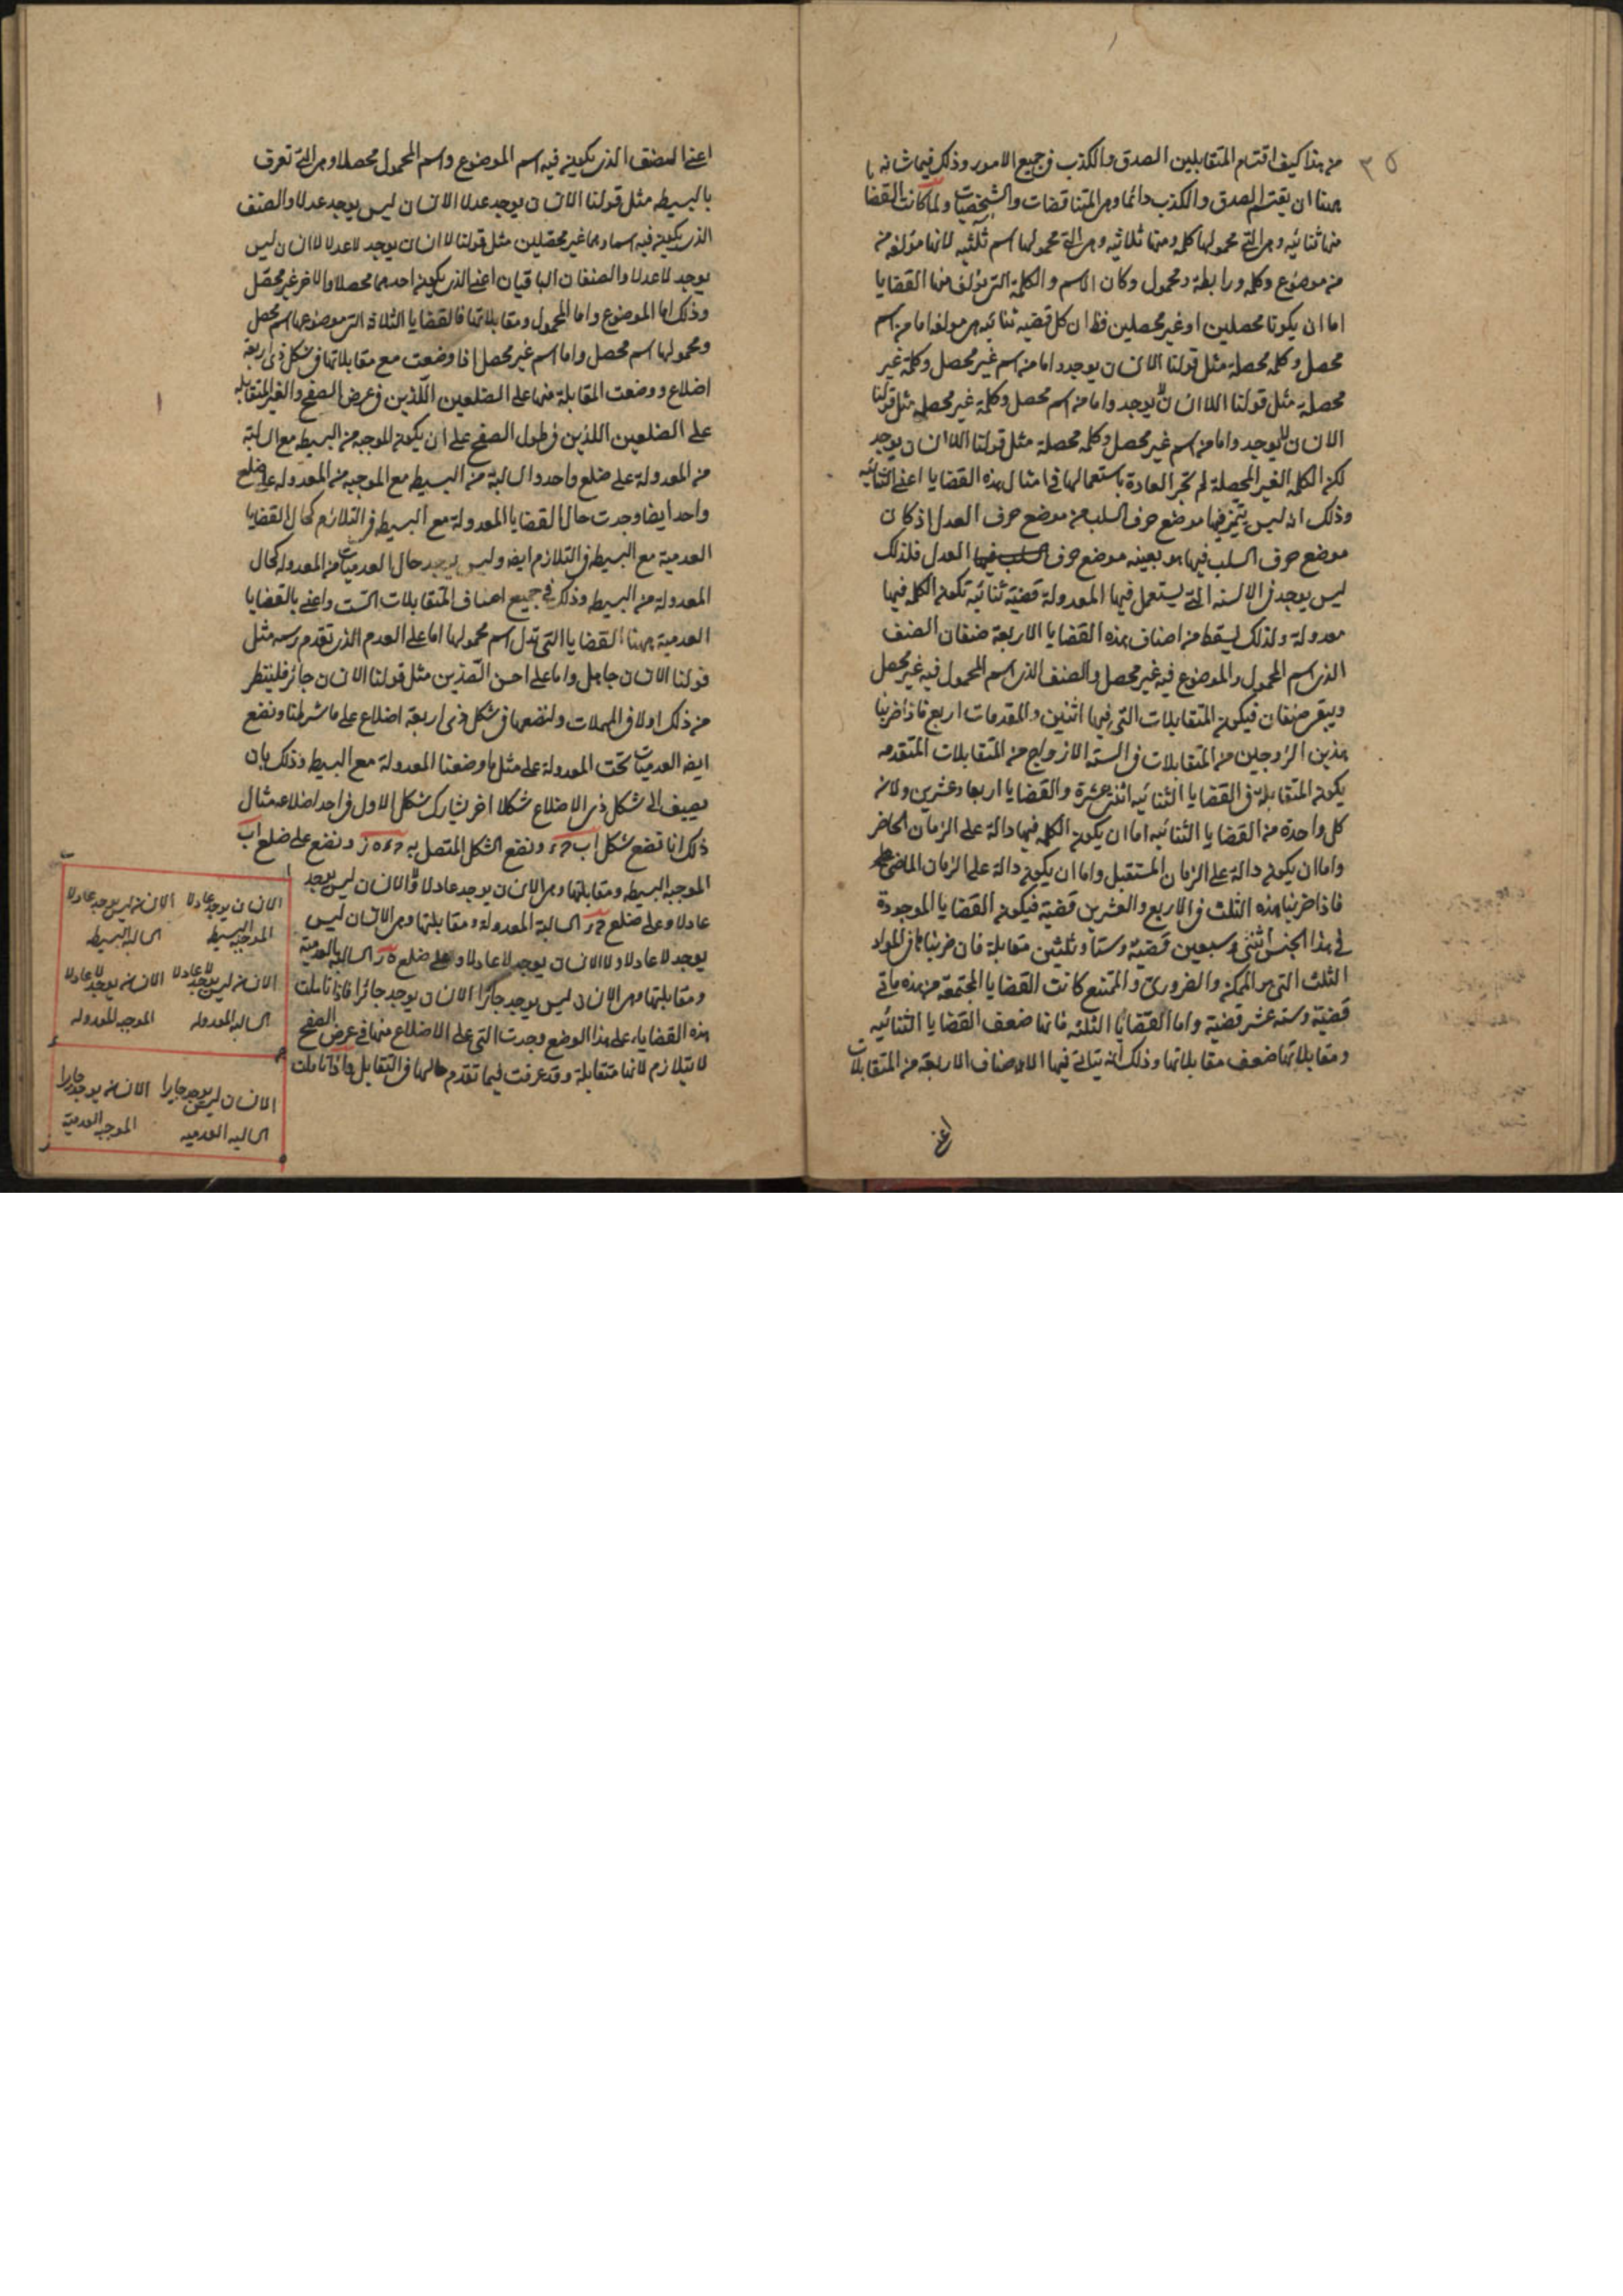 ٣٥
من هذا كيف اقتسام المتقابلين الصدق والكذب في جميع الامور وذلك فيما شانه
ههنا ان يقتسم الصدق والكذب دائما وهي المتناقضات والشخصيات ولما كانت القضايا
منها ثنائيه وهي التي محمولها كلمه ومنها ثلاثيه وهي التي محمولها اسم ثلثيه لانها مؤلفه من
من موضوع وكلمه ورابطة ومحمول وكان الاسم والكلمة التي يؤلف منها القضايا
اما ان يكونا محصلين او غير محصلين فظ ان كل قضيه ثنائيه هي مولفه اما من اسم
محصل وكلمه محصلة مثل قولنا الانسان يوجد واما من اسم غير محصل وكلمة غير
محصلة مثل قولنا اللاانسان لا يوجد واما من اسم محصل وكلمة غير محصله مثل قولنا
الانسان لا يوجد واما من اسم غير محصل وكلمه محصلة مثل قولنا اللاانسان يوجد
لكن الكلمه الغير المحصلة لم تجر العادة باستعمالها في امثال هذه القضايا اعني الثنائيه
وذلك انه ليس يتميز فيها موضع حرف السلب من موضع حرف العدل اذ كان
موضع حرف السلب فيها هو بعينه موضع حرف العدل فلذلك
ليس يوجد في الالسنه التي يستعمل فيها المعدولة قضية ثنائيه تكون الكلمه فيها
معدولة ولذلك يسقط من اصناف هذه القضايا الاربعة صنفان الصنف
الذي اسم المحمول والموضوع فيه غير محصل والصنف الذي اسم المحمول فيه غير محصل
ويبقى صنفان فيكون المتقابلات التي فيها اثنين والمقدمات اربع فاذا ضربنا
هذين الزوجين من المتقابلات في الستة الازواج من المتقابلات المتقدمه
يكون المتقابلة في القضايا الثنائيه اثنتي عشرة والقضايا اربعا وعشرين ولانه
كل واحدة من القضايا الثنائيه اما ان يكون الكلمه فيها دالة على الزمان الحاضر
واما ان يكون دالة على الزمان المستقبل واما ان يكون دالة على الزمان الماضي
فاذا ضربنا هذه الثلث في الاربع والعشرين قضية فيكون القضايا الموجودة
في هذا الجنس اثنتي وسبعين قضية وستا وثلثين متقابلة فان ضربناها في المواد
الثلث التي هي الممكن والضروري والممتنع كانت القضايا المجتمعه من هذه مأتي
قضية وستة عشر قضية واما القضايا الثلثه فانها ضعف القضايا الثنائيه
ومقابلاتها ضعف مقابلاتها وذلك انه يتاتى فيها الاصناف الاربعة من المتقابلات
اعني
اعني الصنف الذي يكون فيه اسم الموضوع واسم المحمول محصلا وهي التي تعرف
بالبسيطه مثل قولنا الانسان يوجد عدلا الانسان ليس يوجد عدلا والصنف
الذي يكون فيه اسماوهما غير محصلين مثل قولنا لا انسان يوجد لاعدلا لا انسان ليس
يوجد لاعدلا والصنفان الباقيان اعني الذي يكون احدهما محصلا والاخر غير محصل
وذلك اما الموضوع واما المحمول ومقابلاتها فالقضايا الثلاثة التي موضوعها اسم محصل
ومحمولها اسم محصل واما اسم غير محصل اذا وضعت مع مقابلاتها في شكل ذي اربعة
اضلاع ووضعت المقابلة منها على الضلعين اللذين في عرض الصفح والغير المتقابله
على الضلعين اللذين في طول الصفح على ان يكون الموجبه من البسيطه مع السالبة
من المعدولة على ضلع واحد والسالبة من البسيطه مع الموجبه من المعدوله على ضلع
واحد ايضا وجدت حال القضايا المعدولة مع البسيطه في التلازم كحال القضايا
العدمية مع البسيطه في التلازم ايضه وليس يوجد حال العدميات من المعدوله كحال
المعدولة من البسيطه وذلك في جميع اصناف المتقابلات الست واعني بالقضايا
العدمية ههنا القضايا التي تدل اسم محمولها اما على العدم الذي تقدم رسمه مثل
قولنا الانسان جاهل واما على احسن الضدين مثل قولنا الانسان جائر فلينظر
من ذلك اولا في المهملات ولنضعها في شكل ذي اربعة اضلاع على ما شرطنا ونضع
ايضه العدميات تحت المعدولة على مثل ما وضعنا المعدولة مع البسيطه وذلك بان
نضيف الى شكل ذي الاضلاع شكلا اخر يشارك شكل الاول في احد اضلاعه مثال
ذلك انا نضع شكل اب ح د ونضع الشكل المتصل به ح د ه ز ونضع على ضلع اب
الموجبه البسيطه ومقابلتها وهي الانسان يوجد عادلا والانسان ليس يوجد
عادلا وعلى ضلع ح د السالبة المعدولة ومقابلتها وهي الانسان ليس
يوجد لاعادلا والانسان يوجد لاعادلا وعلى ضلع ه ز السالبه العدمية
ومقابلتها وهي الانسان ليس يوجد جائرا الانسان يوجد جائرا فاذا تاملت
هذه القضايا على هذا الوضع وجدت التي على الاضلاع منها في عرض الصفح
لا يتلازم لانها متقابلة وقد عرفت فيما تقدم حالها في التقابل واذا تاملت
الانسان يوجد عادلا الانسان ليس يوجد عادلا
الموجبه البسيطه السالبه البسيطه
الانسان ليس يوجد لا عادلا الانسان يوجد لا عادلا
السالبه المعدوله الموجبه المعدوله
الانسان ليس يوجد جايرا الانسان يوجد جايرا
السالبه العدميه الموجبه العدمية